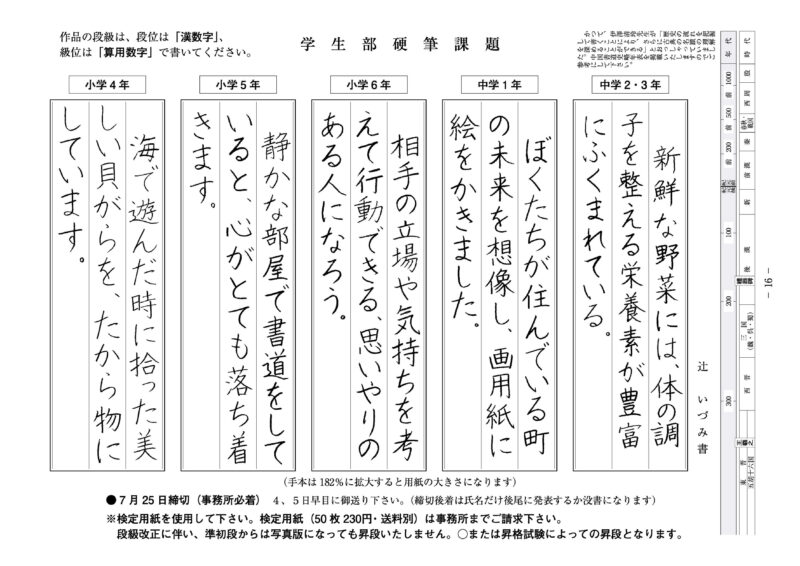 作品の段級は、段位は「漢数字」、
級位は「算用数字」で書いてください。
学生部硬筆課題
中学2・3年
新鮮な野菜には、体の調
子を整える栄養素が豊富
にふくまれている。
中学1年
ぼくたちが住んでいる町
の未来を想像し、画用紙に
絵をかきました。
小学6年
相手の立場や気持ちを考
えて行動できる、思いやりの
ある人になろう。
小学5年
静かな部屋で書道をして
いると、心がとても落ち着
きます。
小学4年
海で遊んだ時に拾った美
しい貝がらを、たから物に
しています。
辻 いづみ書
(手本は182%に拡大すると用紙の大きさになります)
●7月25日締切(事務所必着) 4、5日早目に御送り下さい。(締切後着は氏名だけ後尾に発表するか没書になります)
※検定用紙を使用して下さい。検定用紙(50枚230円・送料別)は事務所までご請求下さい。
段級改正に伴い、準初段からは写真版になっても昇段いたしません。○または昇格試験によっての昇段となります。
年代
前1000
前500
前200
100
200
300
時代
殷
西周
春秋・戦国
秦
前漢
新
後漢
三国
(魏・呉・蜀)
西晋
東晋
五胡十六国
− 16 −